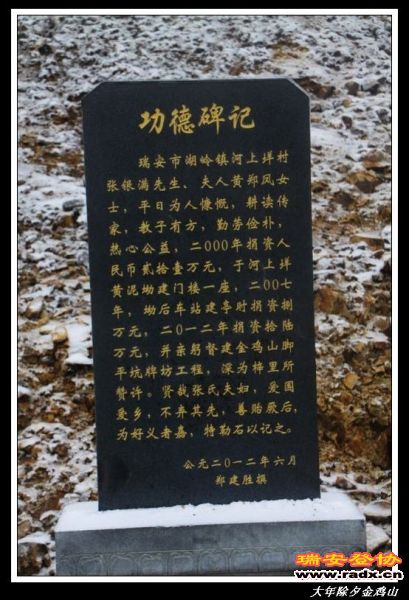 功德碑记
瑞安市湖岭镇河上垟村
张银满先生、夫人黄郑凤女
士，平日为人慷慨，耕读传
家，教子有方，勤劳俭朴，
热心公益，二000年捐资人
民币贰拾壹万元，于河上垟
黄泥坳建门楼一座，二00七
年，坳后车站建亭时捐资捌
万元，二0一二年捐资拾陆
万元，并亲躬督建金鸡山脚
平坑牌坊工程，深为梓里所
赞许。贤哉张氏夫妇，爱国
爱乡，不弃其先，善贻厥后，
为好义者嘉，特勒石以记之。
公元二0一二年六月
郑建胜撰
瑞安登协
www.radx.cn
大年除夕金鸡山